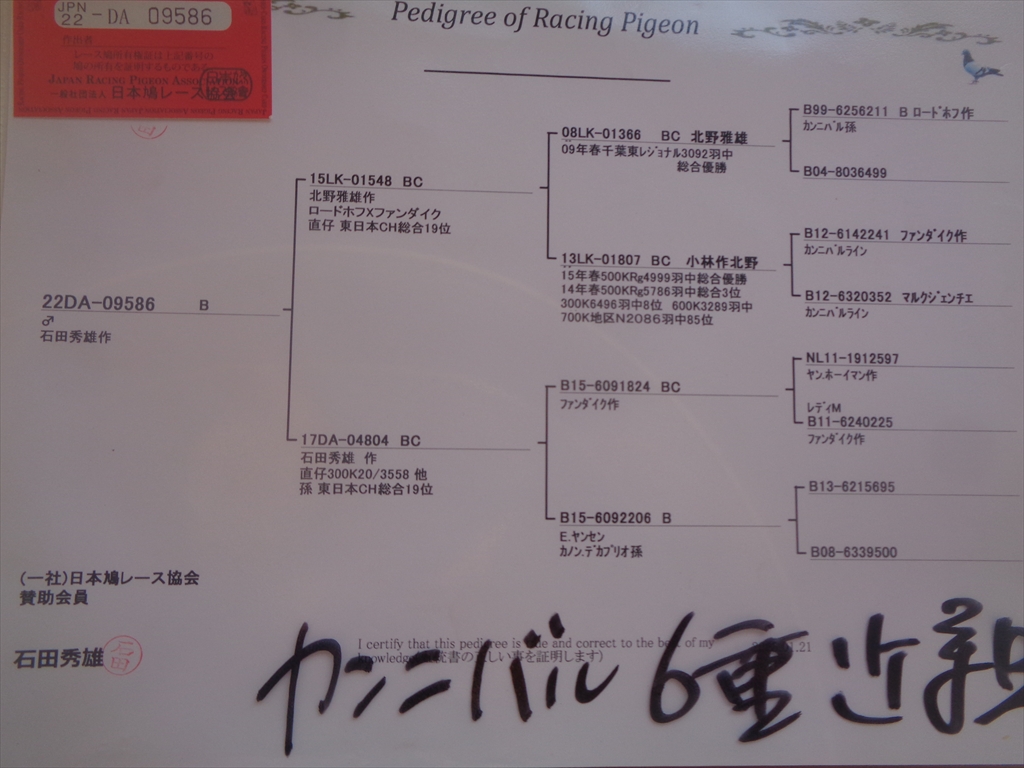 JPN
22 -DA 09586
JAPAN RACING PIGEON
一般社団法人 日本鳩レース協会
Pedigree of Racing Pigeon
22DA-09586 B
♂
石田秀雄作
15LK-01548 BC
北野雅雄作
ロードホフXファンダイク
直仔 東日本CH総合19位
17DA-04804 BC
石田秀雄 作
直仔300K20/3558 他
孫 東日本CH総合19位
08LK-01366 BC 北野雅雄
09年春千葉東レジョナル3092羽中
総合優勝
13LK-01807 BC 小林作北野
15年春500KRg4999羽中総合優勝
14年春500KRg5786羽中総合3位
300K6496羽中8位 600K3289羽中
700K地区N2086羽中85位
B15-6091824 BC
ファンダイク作
B15-6092206 B
E.ヤンセン
カノン.デカプリオ孫
B99-6256211 B ロードホフ作
カンニバル孫
B04-8036499
B12-6142241 ファンダイク作
カンニバルライン
B12-6320352 マルクジェンチエ
カンニバルライン
NL11-1912597
ヤン.ホーイマン作
レディM
B11-6240225
ファンダイク作
B13-6215695
B08-6339500
(一社)日本鳩レース協会
賛助会員
石田秀雄 石田
I certify that this pedigree is and correct to the best of my
しい事を証明します)
カンニバル6重近親